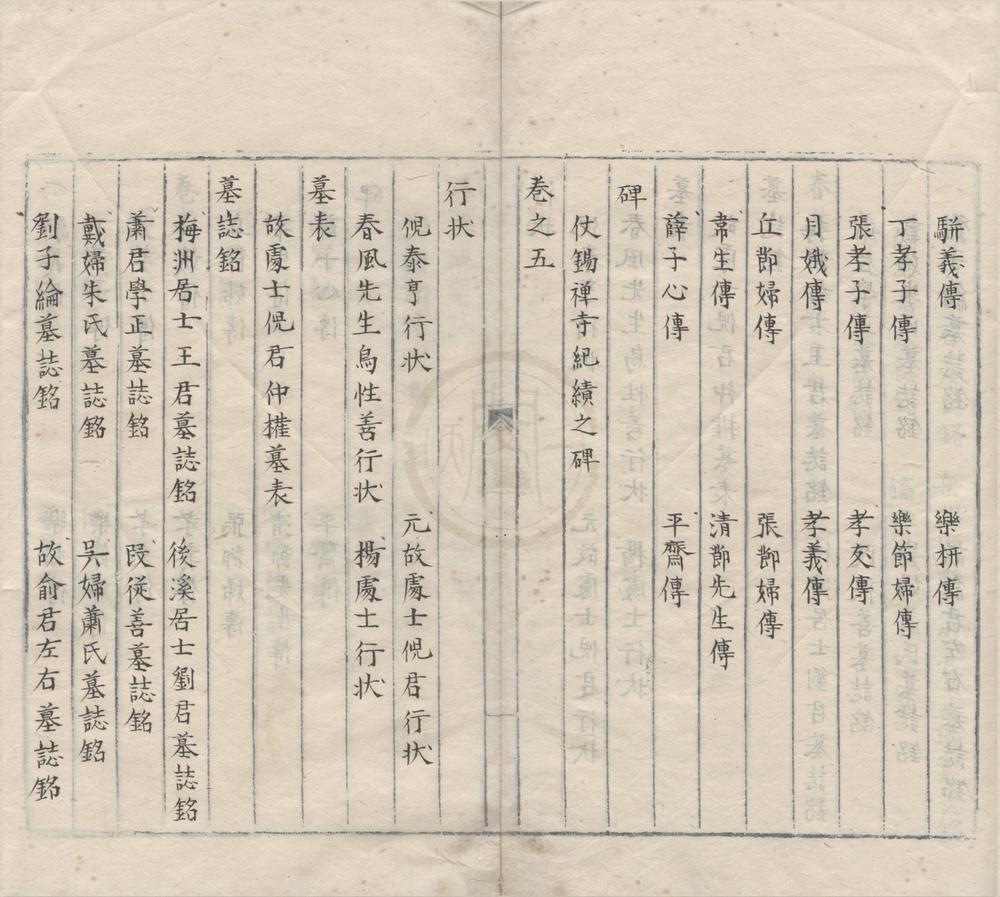 駢義傳 樂枅傳
丁孝子傳 樂節婦傳
張孝子傳 孝友傳
月娥傳 孝義傳
丘節婦傳 張節婦傳
韋生傳 清節先生傳
薛子心傳 平齋傳
碑
仗錫禅寺紀績之碑
卷之五
行狀
倪泰亨行狀 元故處士倪君行狀
春風先生烏性善行狀 楊處士行狀
墓表
故處士倪君仲權墓表
墓誌銘
梅洲居士王君墓誌銘 後溪居士劉君墓誌銘
蕭君學正墓誌銘 段從善墓誌銘
戴婦朱氏墓誌銘 吳婦蕭氏墓誌銘
劉子綸墓誌銘 故俞君左右墓誌銘